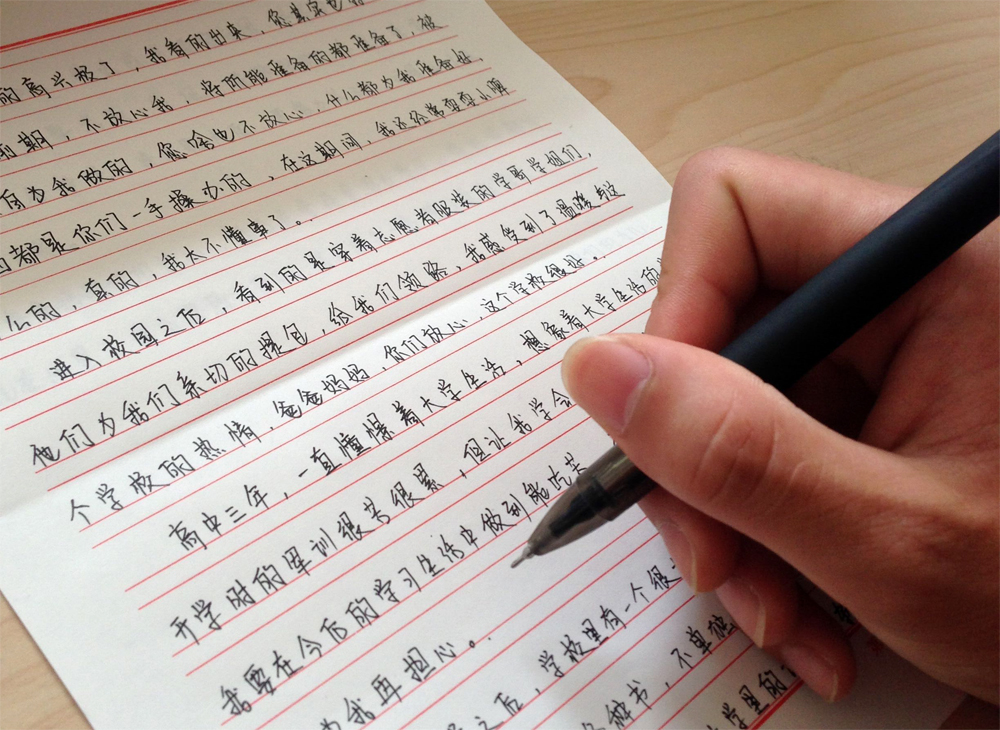 的高兴极了，我看的出来，您其实也有
前期，不放心我，将所能准备的都准备了，被
为我做的，您啥也不放心，什么都为我准备好，
都是你们一手操办的，在这期间，我还经常耍耍小脾
么的，真的，我太不懂事了。
进入校园之后，看到的是穿着志愿者服装的学哥学姐们，
他们为我们亲切的提包，给我们领路，我感受到了温暖与这
个学校的热情，爸爸妈妈，你们放心，这个学校很好。
高中三年，一直憧憬着大学生活，想象着大学生活的
开学时的军训很苦很累，但让我学会
我要在今后的学习生活中做到能吃苦
为我再担心。
之后，学校里有一个很
各种书，不单独
学里的